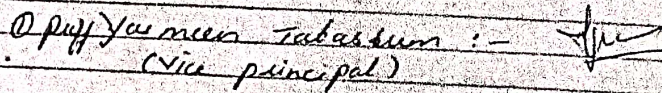 ① Prof Yasmeen Tabassum :-
(vice principal)